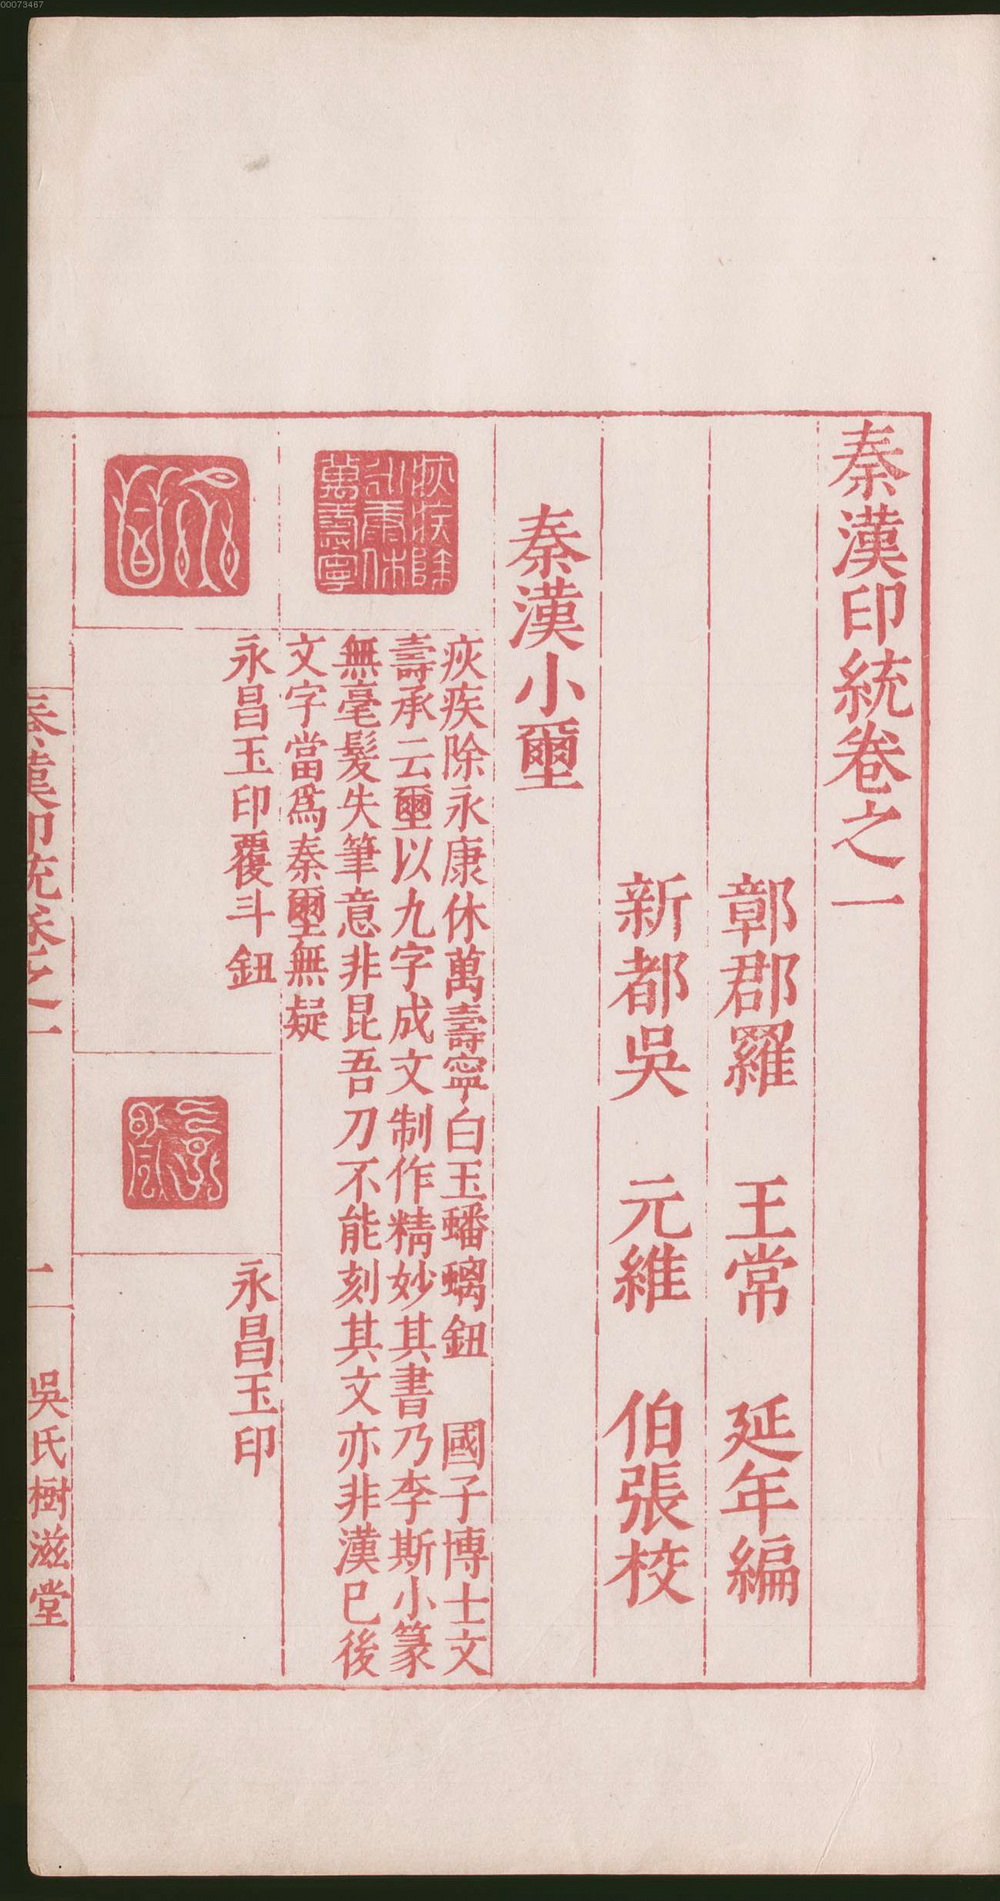 00073467
秦漢印統卷之一
鄣郡羅 王常 延年編
新都吳 元維 伯張校
秦漢小璽
疢疾除永康休萬壽寧
疢疾除永康休萬壽寧白玉蟠螭鈕 國子博士文
壽承云璽以九字成文制作精妙其書乃李斯小篆
無毫髮失筆意非昆吾刀不能刻其文亦非漢已後
文字當爲秦璽無疑
永昌
永昌玉印覆斗鈕
永昌
永昌玉印
秦漢印統卷之一
二
吳氏樹滋堂